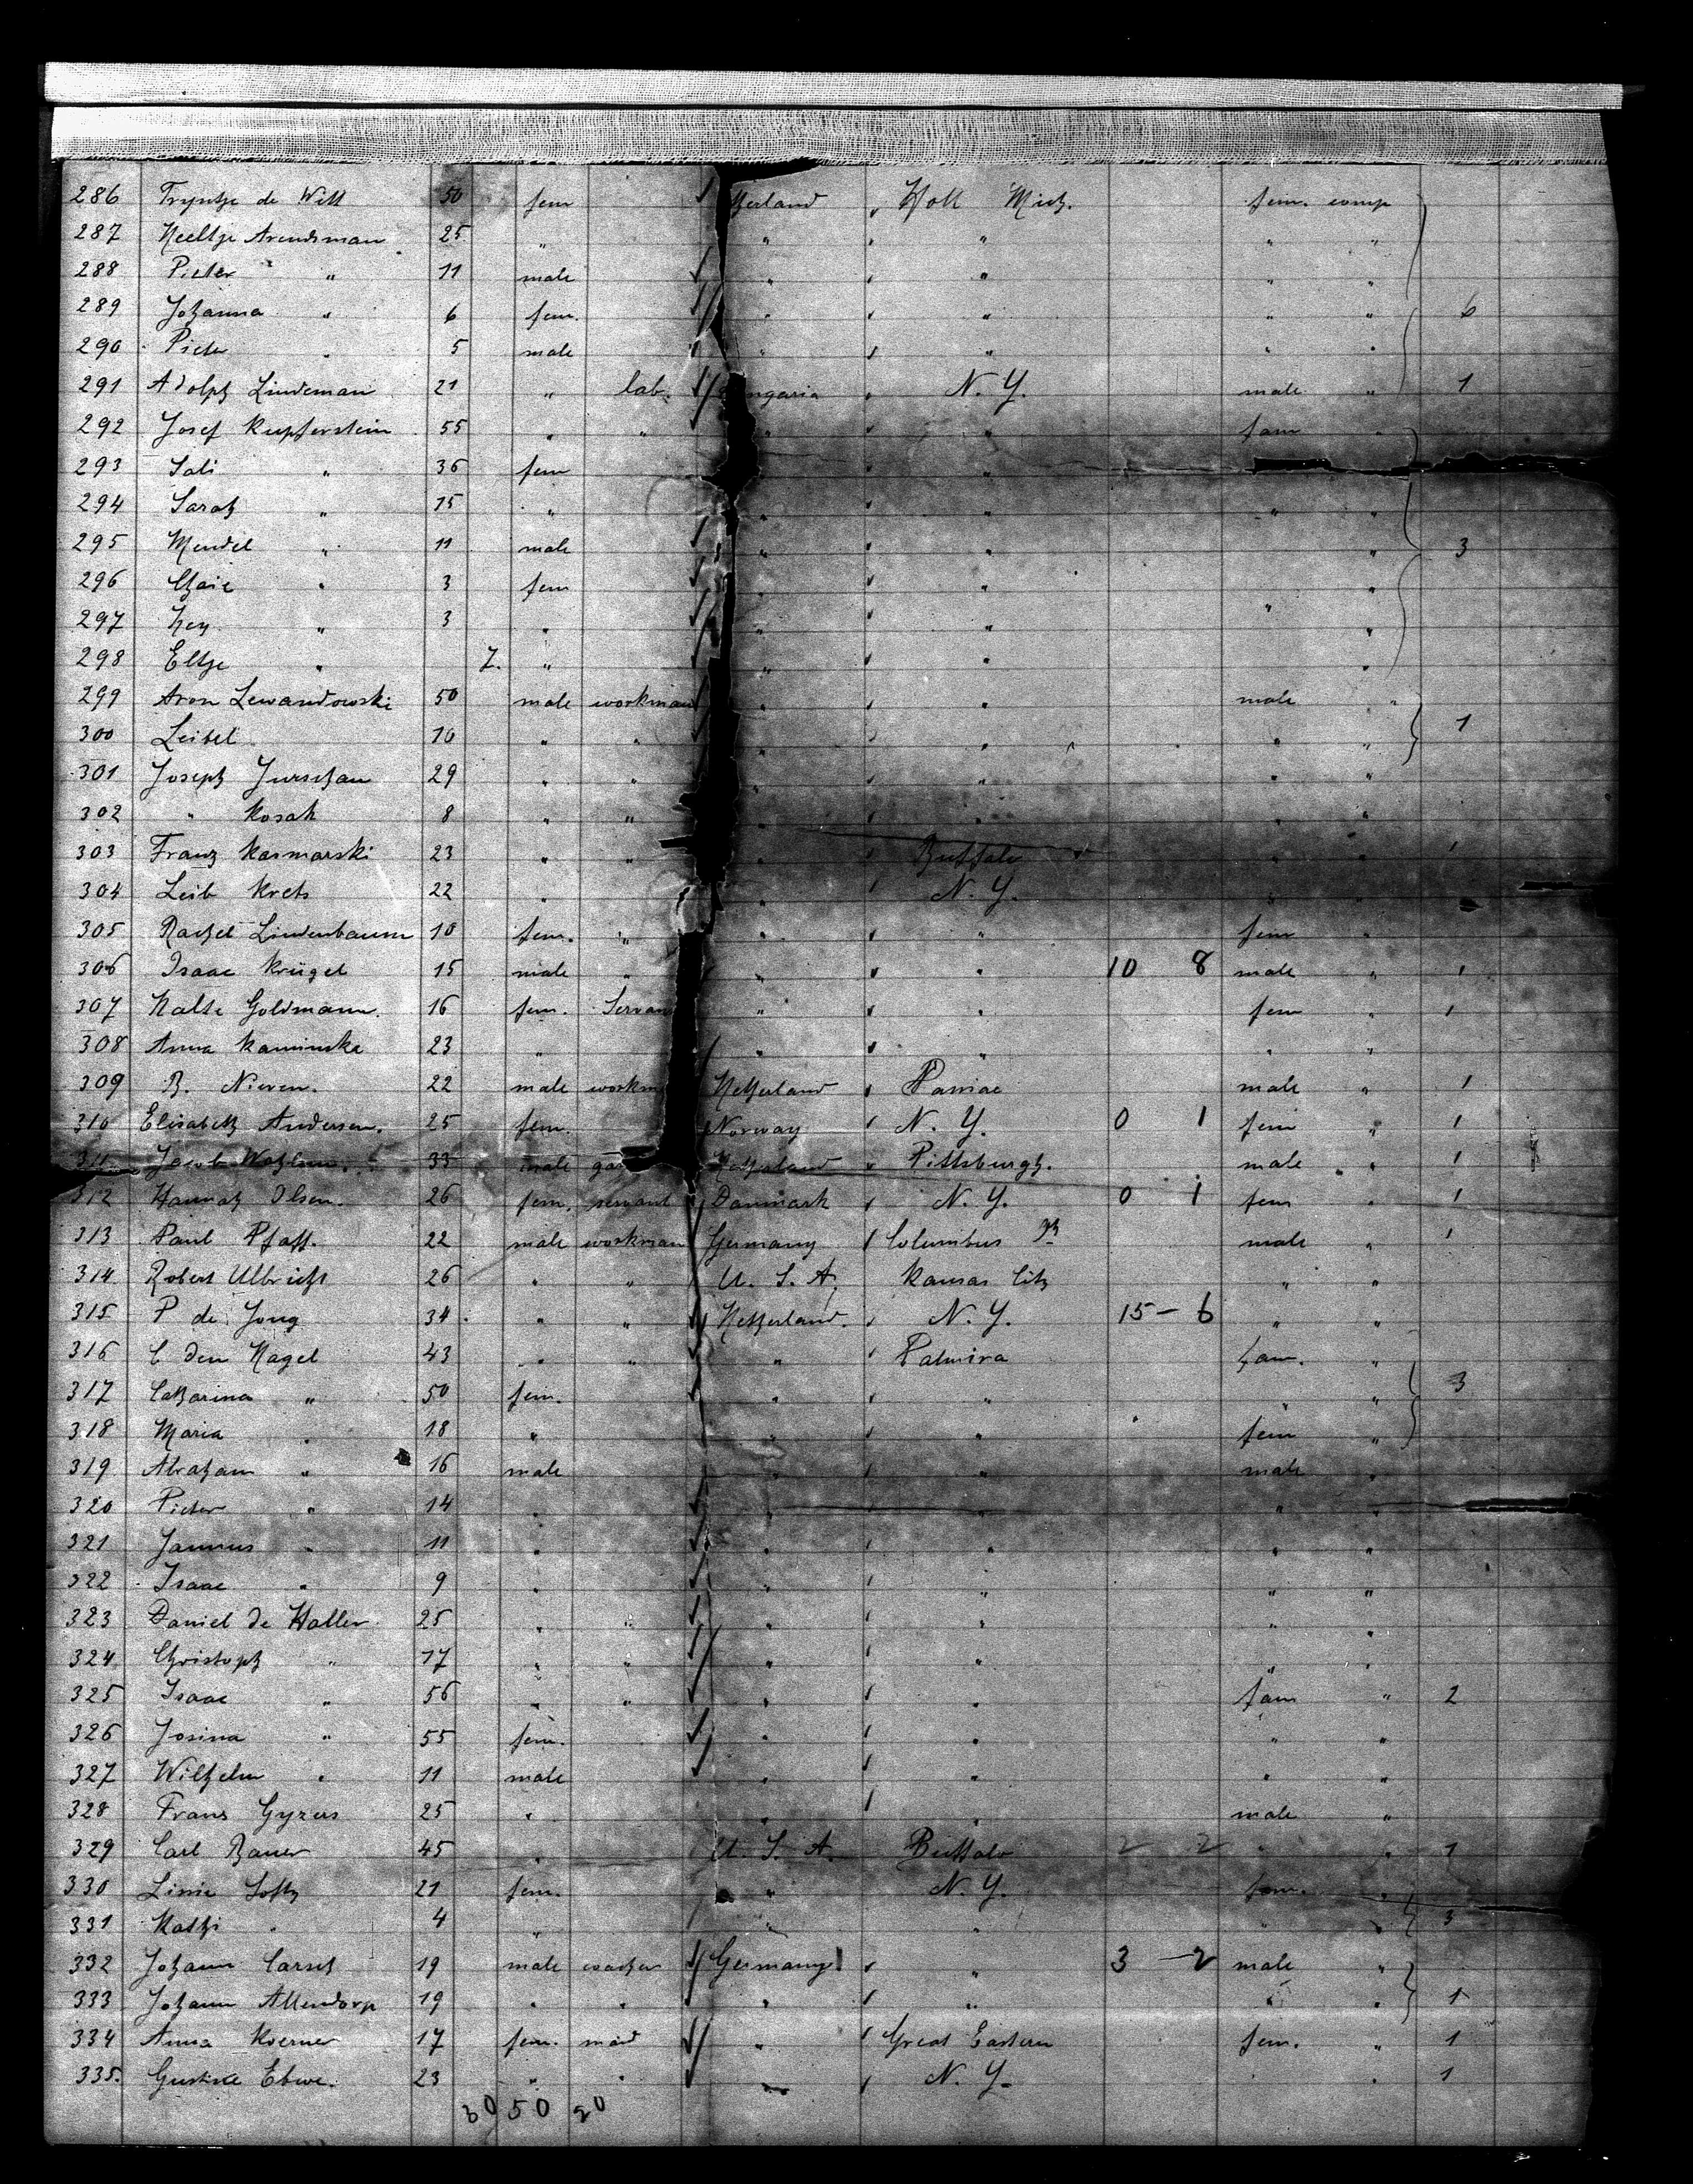 286 Tryntje de Witt 50 fem ✓ therland Holl Mich. fem. comp
287 Neeltje Arendsman 25 " " " " "
288 Pieter " 11 male " " " "
289 Johanna " 6 fem. " " " " 6
290 Pieter " 5 male " " " "
291 Adolph Lindeman 21 " lab. ngaria N. Y. male " 1
292 Josef Kupferstein 55 " " " " fam "
293 Sali " 36 fem " "
294 Sarah " 15 " " " " "
295 Mendel " 11 male " " " 3
296 Chaie " 3 fem " " "
297 " 3 " " " " "
298 Eltje " 7. " " " "
299 Aron Lewandowski 50 male workman " " male "
300 Leibel 10 " " " " " " 1
301 Joseph Jurschan 29 " " " " " "
302 " Kosak 8 " " " " " "
303 Franz Kasmarski 23 " " " Buffalo " " 1
304 Leib Krets 22 " " N. Y. " "
305 Rachel Lindenbaum 10 fem. " " " fem "
306 Isaac Krügel 15 male " " " 10 8 male " 1
307 Malte Goldmann. 16 fem. Servan " " fem " 1
308 Anna Kaminska 23 " " " " "
309 B. Nieven. 22 male workm Netherland male " 1
310 Elisabeth Andersen. 25 fem. Norway N. Y. 0 1 fem " 1
311 Jacob 33 male Netherland Pittsburgh. male " 1
312 Hannah Olsen. 26 fem. servant Danmark N. Y. 0 1 fem " 1
313 Paul Pfaff. 22 male workman Germany Columbus male " 1
314 Robert Ulbricht 26 " " U. S. A. Kansas City " "
315 P de Jong 34 " " Netherland. N. Y. 15 — 6 " "
316 C den Nagel 43 " " " Palmira fam. "
317 Catharina " 50 fem. " " " " 3
318 Maria " 18 " " " fem "
319 Abraham " 16 male " " male "
320 Pieter " 14 " " " " "
321 Jannus " 11 " " " " "
322 Isaac " 9 " " " " "
323 Daniel de Haller 25 " " " " " "
324 Christoph " 17 " " " " " "
325 Isaac " 56 " " " " fam " 2
326 Josina " 55 fem. " " " "
327 Wilhelm " 11 male " " " "
328 Frans Gyzers 25 " " " male "
329 Carl Bauer 45 " U. S. A. Buffalo 2 2 " " 1
330 Linie 21 fem. " N. Y. fam. "
331 Kathi " 4 " " " " " 3
332 Johann Carsch 19 male Germany " 3 — 2 male "
333 Johann Allendorp 19 " " " " " " 1
334 Anna Koerner 17 fem. maid " Great Eastern fem. " 1
335. 23 " " " N. Y. " " 1
30 50 20